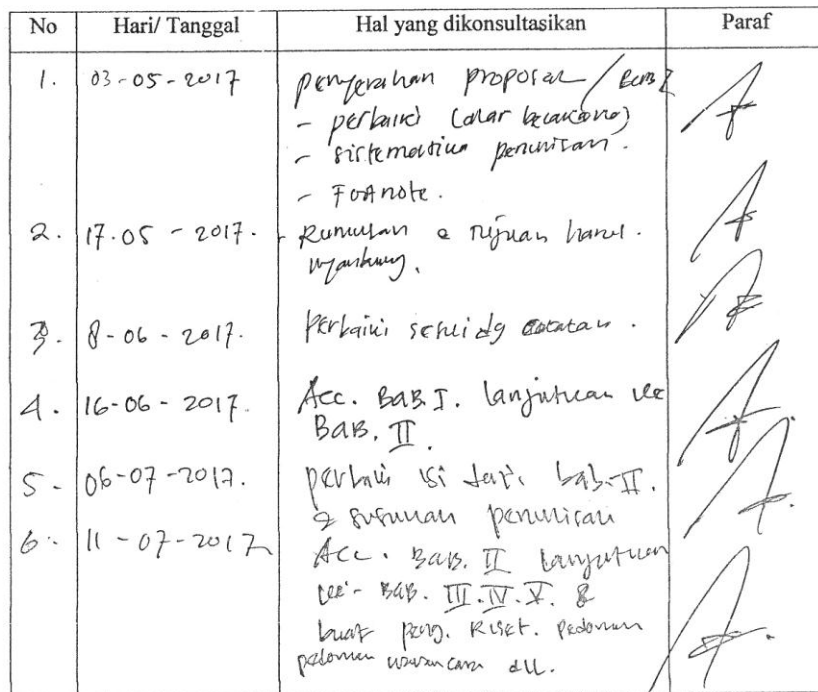 No Hari/ Tanggal Hal yang dikonsultasikan Paraf
1. 03-05-2017 penyerahan proposal / BAB I
- perbaiki latar belakang
- sistematika penulisan.
- Footnote.
2. 17.05-2017. - Rumusan & tujuan harus
nyambung.
3. 8-06-2017. perbaiki sesuai dg catatan.
4. 16-06-2017. Acc. BAB. I. lanjutkan ke
BAB. II.
5- 06-07-2017. perbaiki isi dari bab-II.
& susunan penulisan
6. 11-07-2017 Acc. BAB. II lanjutkan
ke- BAB. III. IV. V. &
buat peng. Riset. Pedoman
pedoman wawancara dll.